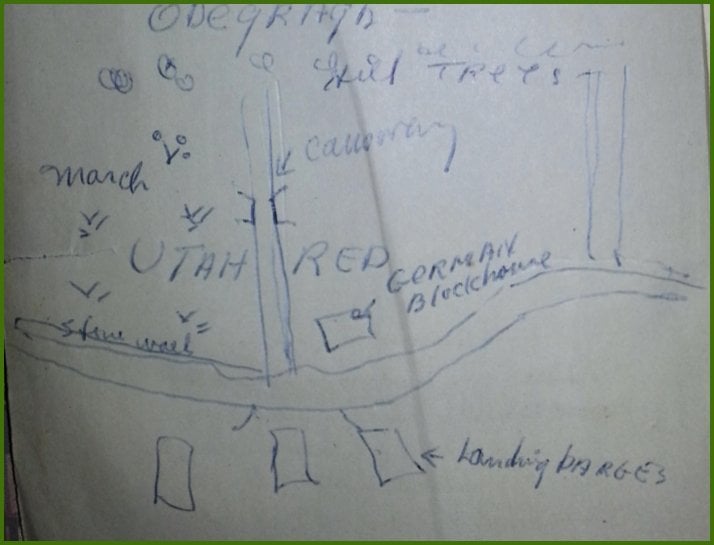 TREES
Causeway
March
UTAH RED
GERMAN
Blockhouse
Stone wall
← Landing BARGES